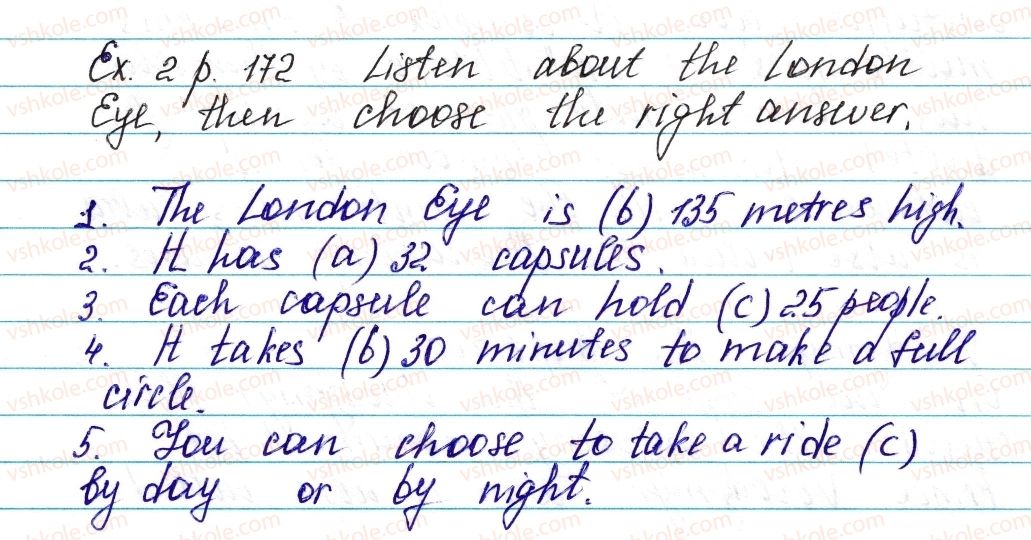 Ex. 2 p. 172 Listen about the London
Eye, then choose the right answer.
1. The London Eye is (b) 135 metres high.
2. It has (a) 32 capsules.
3. Each capsule can hold (c) 25 people.
4. It takes (b) 30 minutes to make a full
circle.
5. You can choose to take a ride (c)
by day or by night.